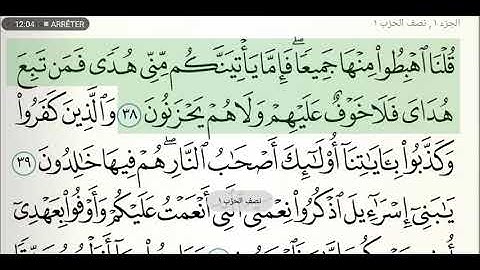 12:04 ■ ARRÊTER
الجزء ١, نصف الحزب ١
قُلْنَا ٱهْبِطُوا۟ مِنْهَا جَمِيعًا ۖ فَإِمَّا يَأْتِيَنَّكُم مِّنِّى هُدًى فَمَن تَبِعَ
هُدَاىَ فَلَا خَوْفٌ عَلَيْهِمْ وَلَا هُمْ يَحْزَنُونَ ٣٨ وَٱلَّذِينَ كَفَرُوا۟
وَكَذَّبُوا۟ بِـَٔايَـٰتِنَآ أُو۟لَـٰٓئِكَ أَصْحَـٰبُ ٱلنَّارِ ۖ هُمْ فِيهَا خَـٰلِدُونَ ٣٩
نصف الحزب ١
يَـٰبَنِىٓ إِسْرَٰٓءِيلَ ٱذْكُرُوا۟ نِعْمَتِىَ ٱلَّتِىٓ أَنْعَمْتُ عَلَيْكُمْ وَأَوْفُوا۟ بِعَهْدِىٓ